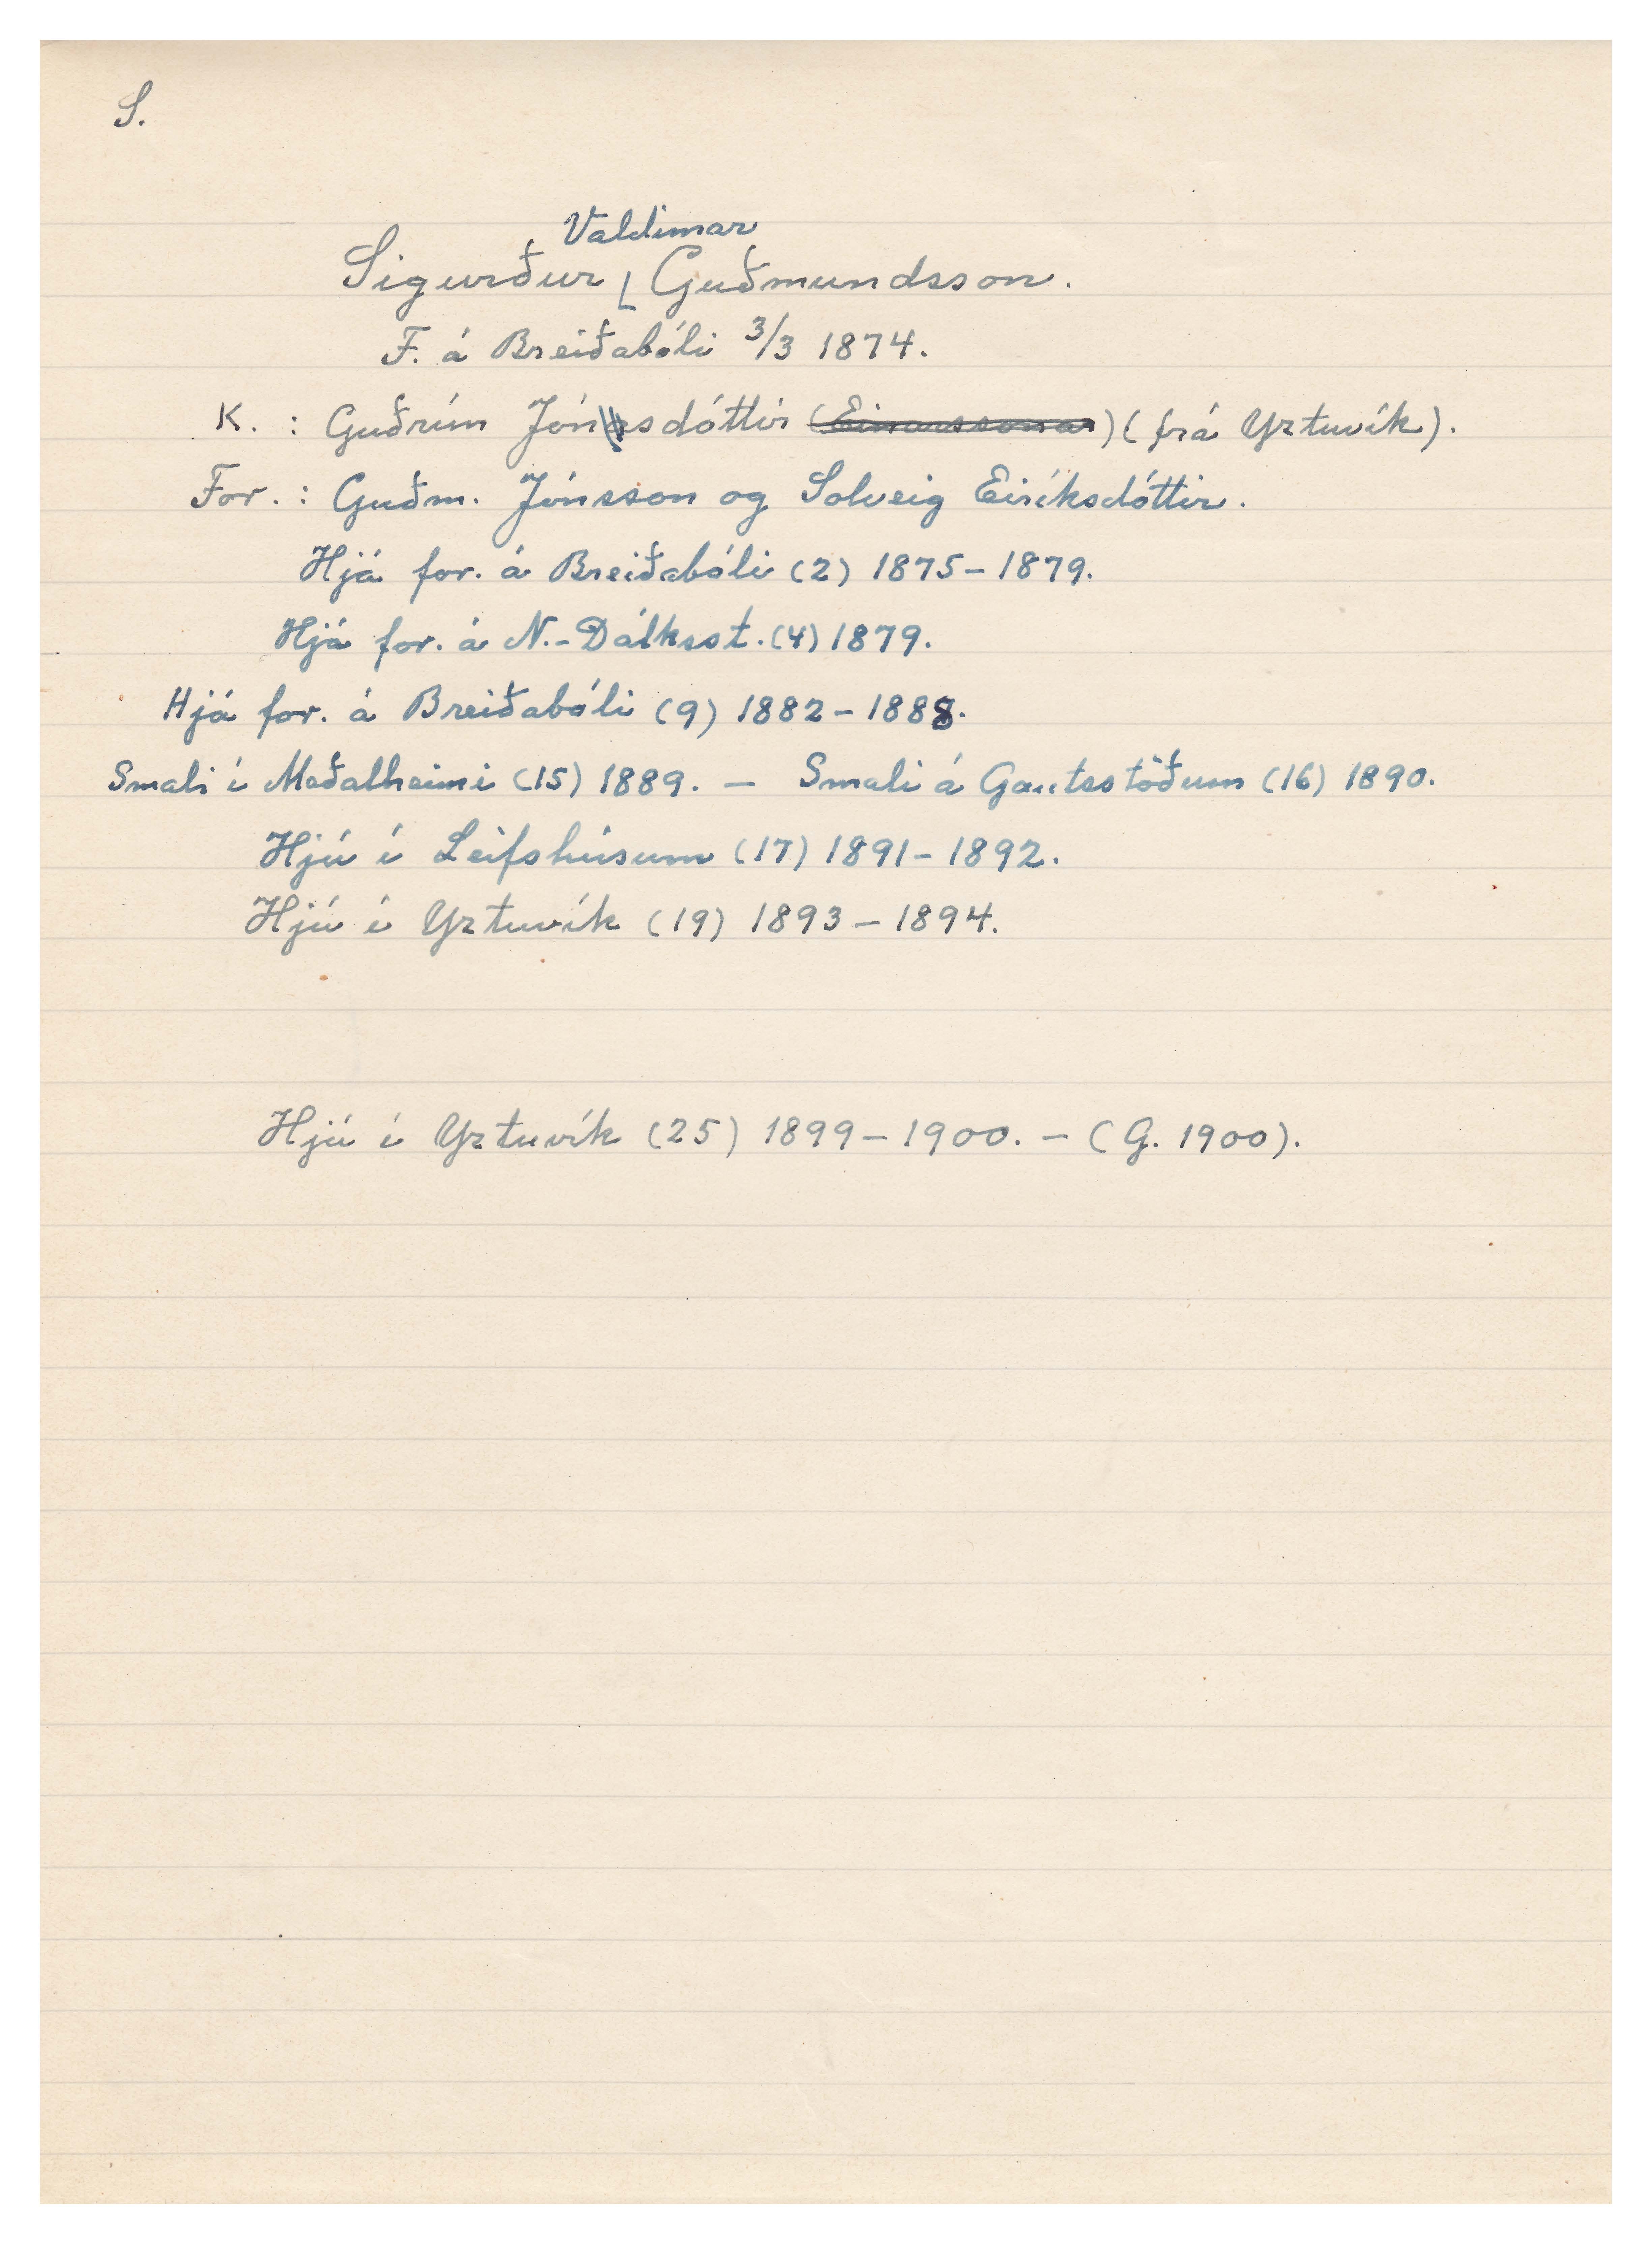 S.
Valdimar
Sigurður Guðmundsson.
F. á Breiðabóli 3/3 1874.
K. : Guðrún Jónasdóttir (Einarssonar) (frá Yztuvík).
For. : Guðm. Jónsson og Solveig Eiríksdóttir.
Hjá for. á Breiðabóli (2) 1875-1879.
Hjá for. á N.-Dálksst. (4) 1879.
Hjá for. á Breiðabóli (9) 1882-1888.
Smali í Meðalheimi (15) 1889. - Smali á Gautsstöðum (16) 1890.
Hjú í Leifshúsum (17) 1891-1892.
Hjú í Yztuvík (19) 1893-1894.
Hjú í Yztuvík (25) 1899-1900. - (G. 1900).